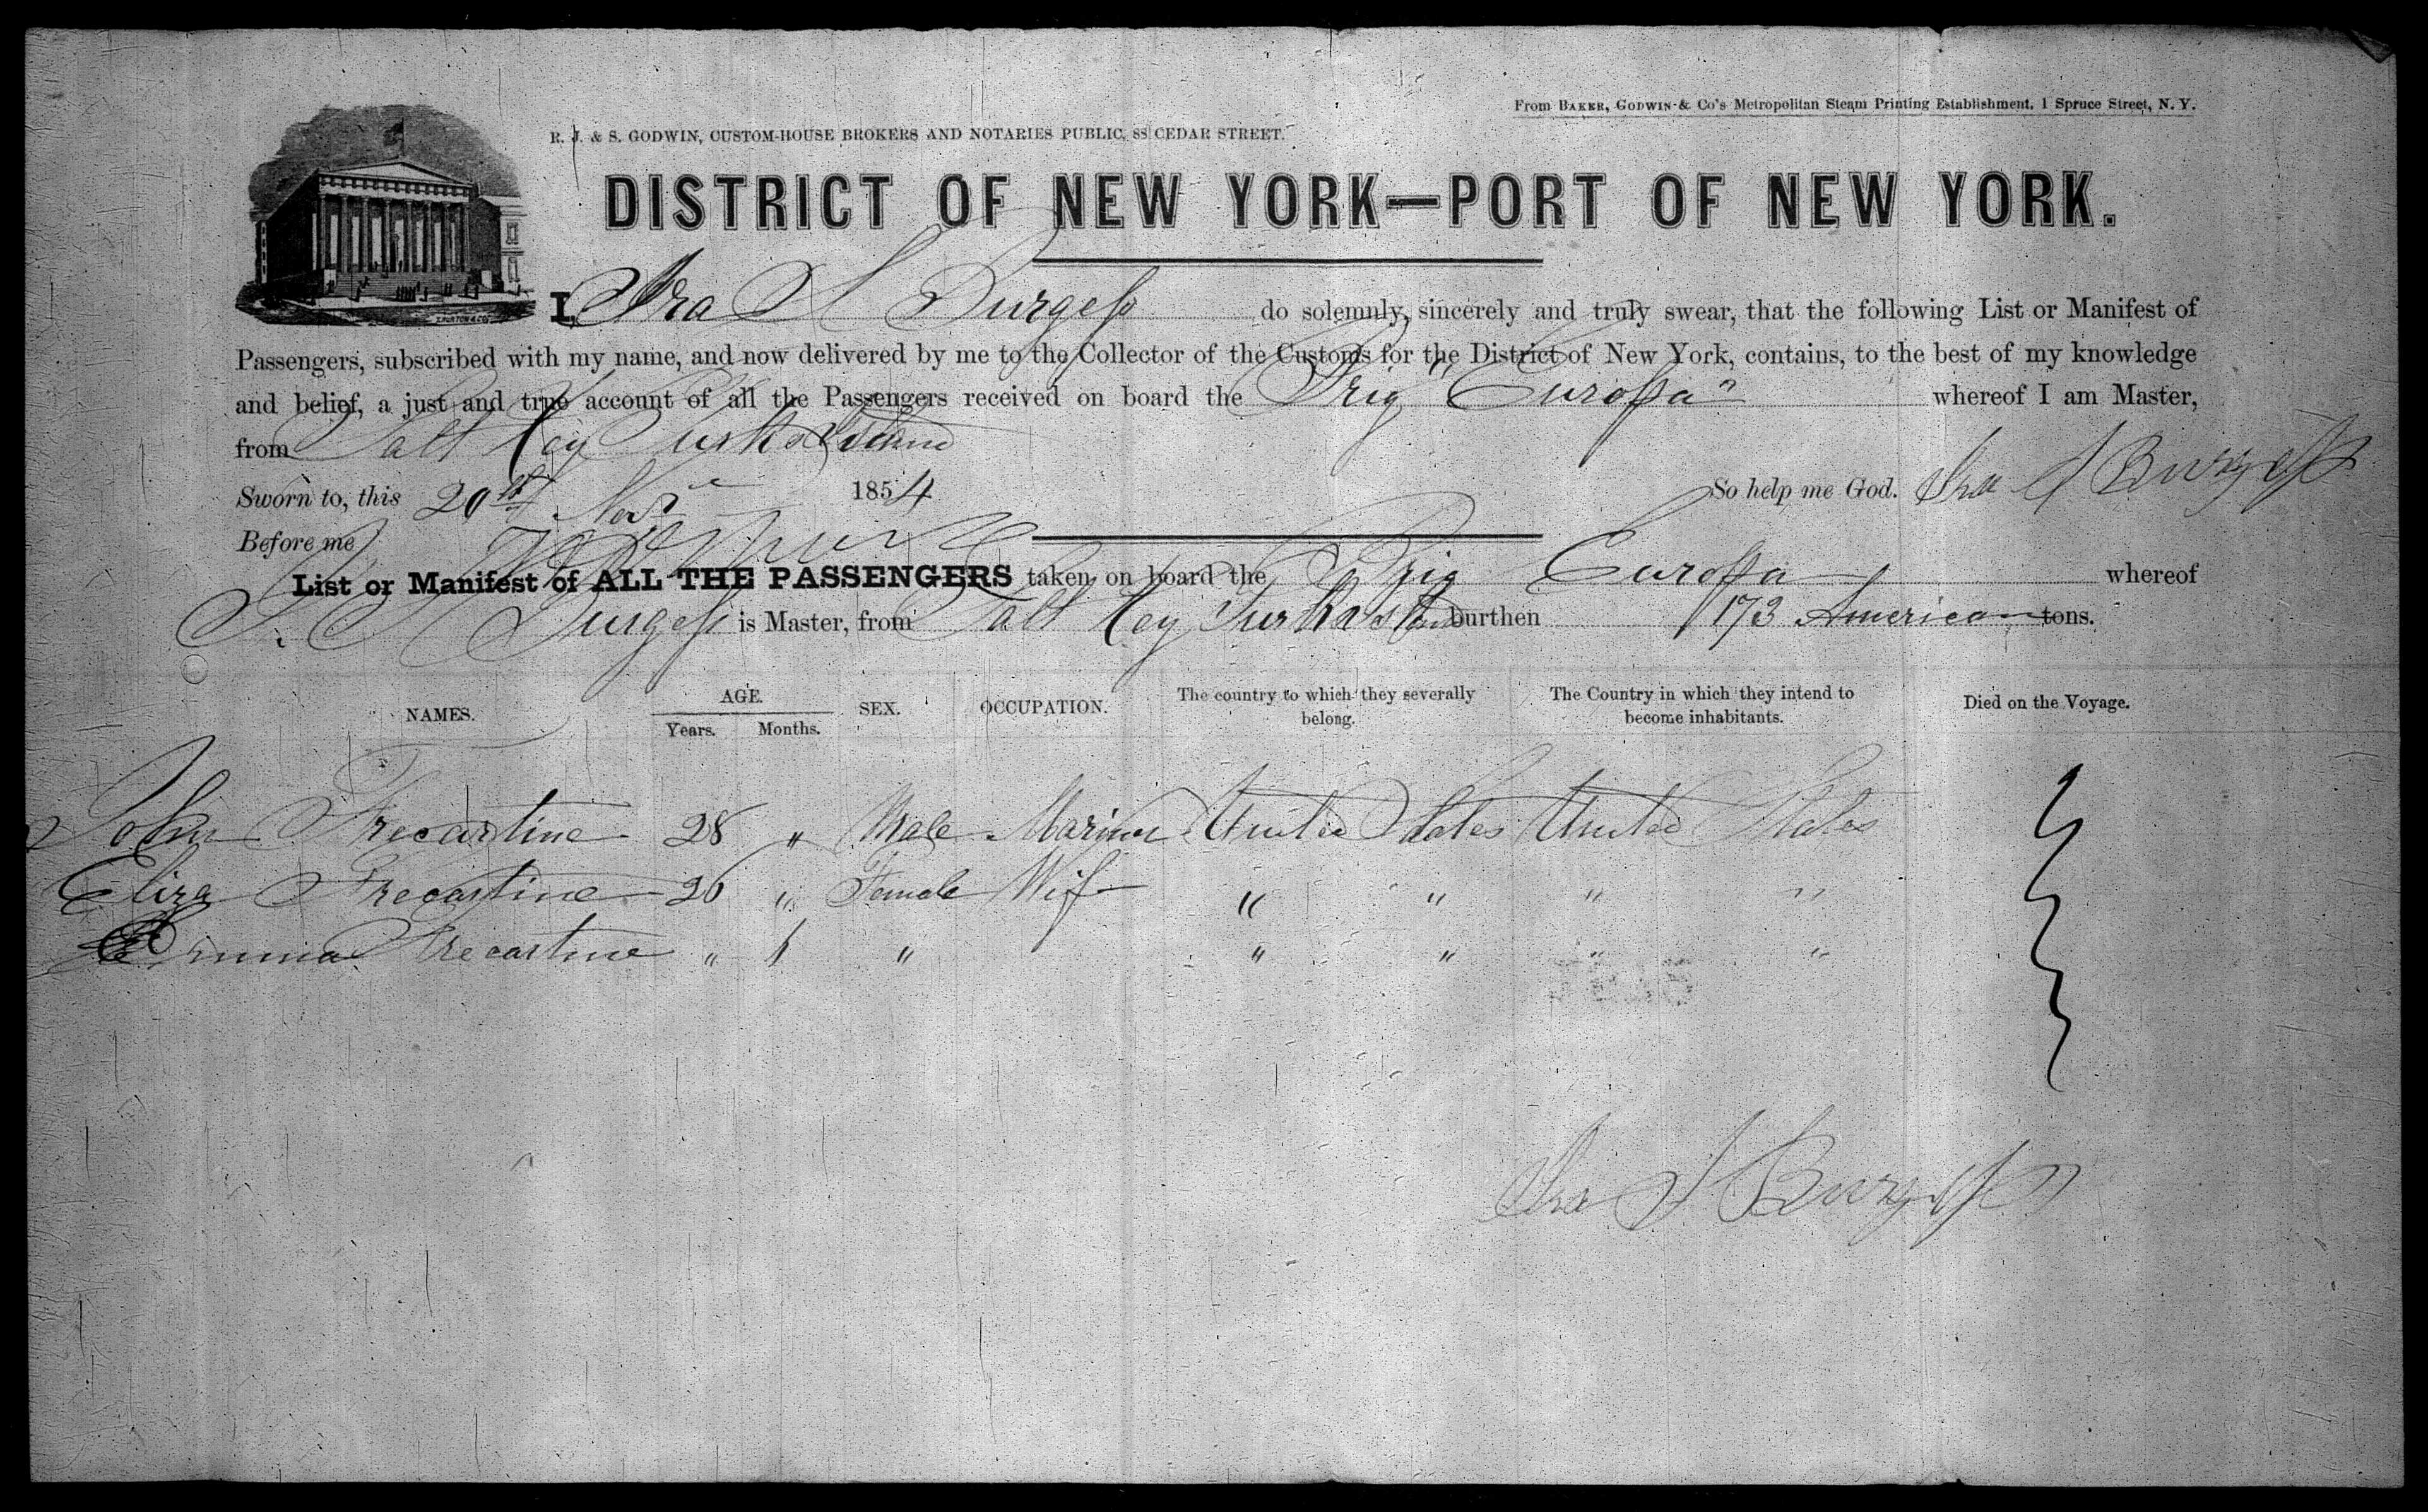 From BAKER, GODWIN & Co's Metropolitan Steam Printing Establishment, 1 Spruce Street, N. Y.
R. J. & S. GODWIN, CUSTOM-HOUSE BROKERS AND NOTARIES PUBLIC, 88 CEDAR STREET.
DISTRICT OF NEW YORK—PORT OF NEW YORK.
I, Ira S Burgess do solemnly, sincerely and truly swear, that the following List or Manifest of
Passengers, subscribed with my name, and now delivered by me to the Collector of the Customs for the District of New York, contains, to the best of my knowledge
and belief, a just and true account of all the Passengers received on board the Brig "Europa" whereof I am Master,
from Salt Key Turks Island
Sworn to, this 20th Nov 1854 So help me God. Ira S Burgess
Before me
List or Manifest of ALL THE PASSENGERS taken on board the Brig Europa whereof
I. S Burgess is Master, from Salt Key Turks Island burthen 173 American tons.
NAMES. AGE. Years. Months. SEX. OCCUPATION. The country to which they severally belong. The Country in which they intend to become inhabitants. Died on the Voyage.
John Frecartine 28 " Male Mariner United States United States
Eliza Frecartine 26 " Female Wife " " " "
Emma Frecartine " " " " " "
Ira S Burgess